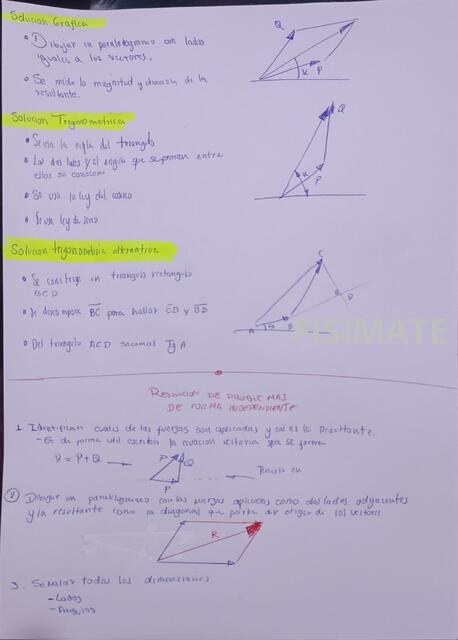 Solucion Grafica
① Dibujar un paralelogramo con lados
iguales a los vectores.
Se mide la magnitud y direccion de la
resultante.
Q
P
α
Solucion Trigonometrica
Se usa la regla del triangulo
Los dos lados y el angulo que se forman entre
ellos se conocen
Se usa la ley del coseno
Se usa ley de seno
Q
α
P
Solucion trigonometrica alternativa
Se construye un triangulo rectangulo
BCD
Se descompone BC para hallar CD y BD
Del triangulo ACD sacamos Tg A
C
D
A
B
FISIMATE
RESOLUCION DE PROBLEMAS
DE FORMA INDEPENDIENTE
1. Identifican cuales de las fuerzas son aplicadas y cual es la Resultante.
- Es de forma util escribir la ecuacion vectorial que se forma
R = P + Q
P
Q
P
Tenerla en
② Dibujar un paralelogramo con las fuerzas aplicadas como dos lados adyacentes
y la resultante como la diagonal que parte del origen de los vectores
R
3. Señalar todos los dimensiones
- Lados
- Angulos